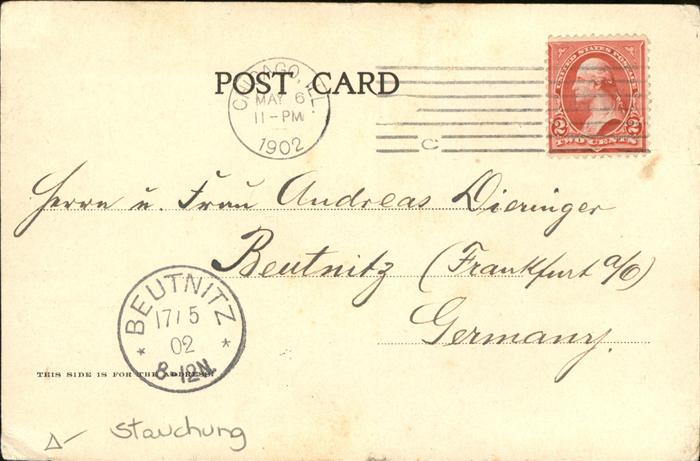 POST CARD
CHICAGO, ILL.
MAY 6
11-PM
1902
C
UNITED STATES POSTAGE
2 2
TWO CENTS
Herrn u. Frau Andreas Dieringer
Beutnitz (Frankfurt a/O)
Germany.
* BEUTNITZ *
17/5
02
8-12N.
THIS SIDE IS FOR THE ADDRESS.
Stauchung